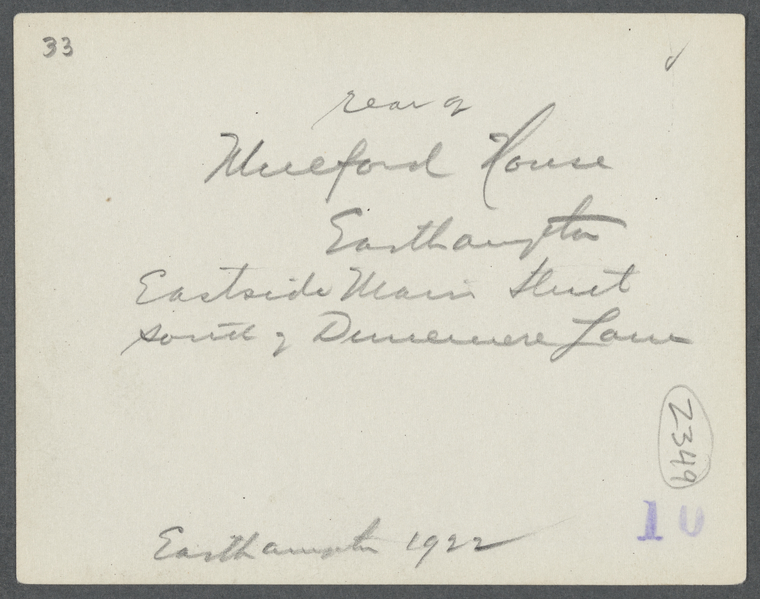 33
rear of
Mulford House
Easthampton
Eastside Main Street
south of Dunemere Lane
2349
10
Easthampton 1922